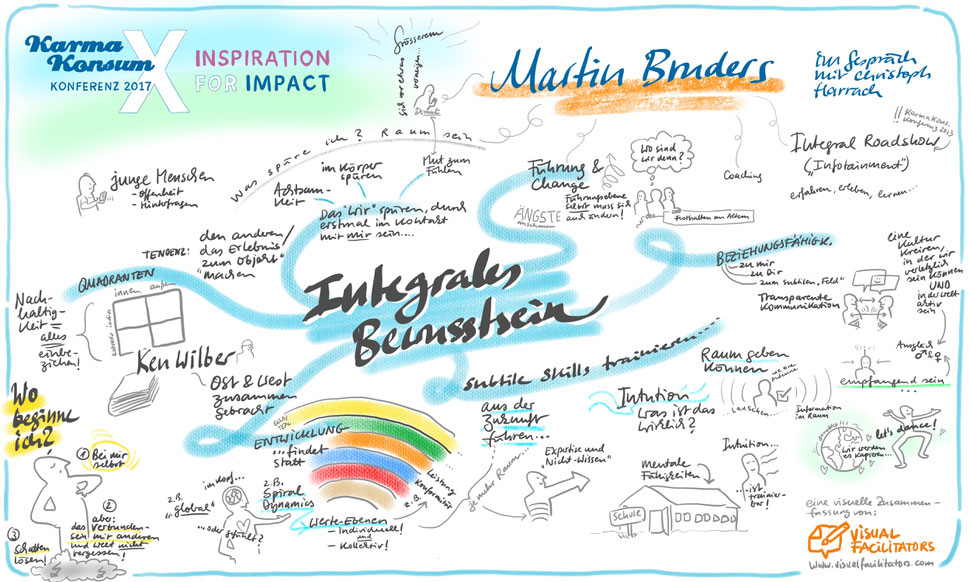 Karma
Konsum
KONFERENZ 2017
X
INSPIRATION
FOR IMPACT
Martin Bruders
Ein Gespräch
mit Christoph
Harrach
!! KarmaKons.
Konferenz 2013
Integral Roadshow
("Infotainment")
erfahren, erleben, lernen...
sich vor etwas
Grösserem
verneigen...
Demut
Was spüre ich? Raum sein
junge Menschen
- Offenheit
- Hinterfragen
im Körper
spüren
Achtsam-
keit
Mut zum
Fühlen
Das "Wir" spüren, durch
erstmal im Kontakt
mit mir sein....
TENDENZ:
den anderen/
das Erlebnis
zum Objekt
"machen"
Führung &
Change
Führungsebene
selbst muss sich
auch ändern!
ÄNGSTE
Wo sind
wir denn?
Festhalten am Altem
Coaching
Integrales
Bewusstsein
QUADRANTEN
innen außen
Nach-
haltig-
keit =
alles
einbe-
ziehen!
Ken Wilber
Ost & West
zusammen
gebracht
BEZIEHUNGSFÄHIGK.
zu mir
zu Dir
zum subtilen „Feld"
Transparente
Kommunikation
eine
Kultur
kreiren,
in der wir
verletzlich
sein können
UND
in der Welt
aktiv
sein
Ausgleich
♂ & ♀
empfangend sein
subtile skills trainieren.....
Raum geben
können
lauschen...
Information
im Raum
Intuition
was ist das
wirklich?
Intuition...
...ist
trainier-
bar!
let's dance!
Wir werden
es kapieren...
Wo
beginne
ich?
① Bei mir
selbst
②
aber:
das Verbunden-
sein mit anderen
und Welt nicht
vergessen!
③
Schatten
lösen!
ENTWICKLUNG
...findet
statt
z.B.
Spiral
Dynamics
Leistung
Konformität
Werte-Ebenen
- Individuell!
und
- Kollektiv!
z.B.
"global"
im Kopf...
...oder gefühlt?
aus der
Zukunft
führen...
mehr Raum...
"Expertise und
Nicht-Wissen"
mentale
Fähigkeiten
SCHULE
eine visuelle Zusammen-
fassung von:
VISUAL
FACILITATORS
www.visualfacilitators.com